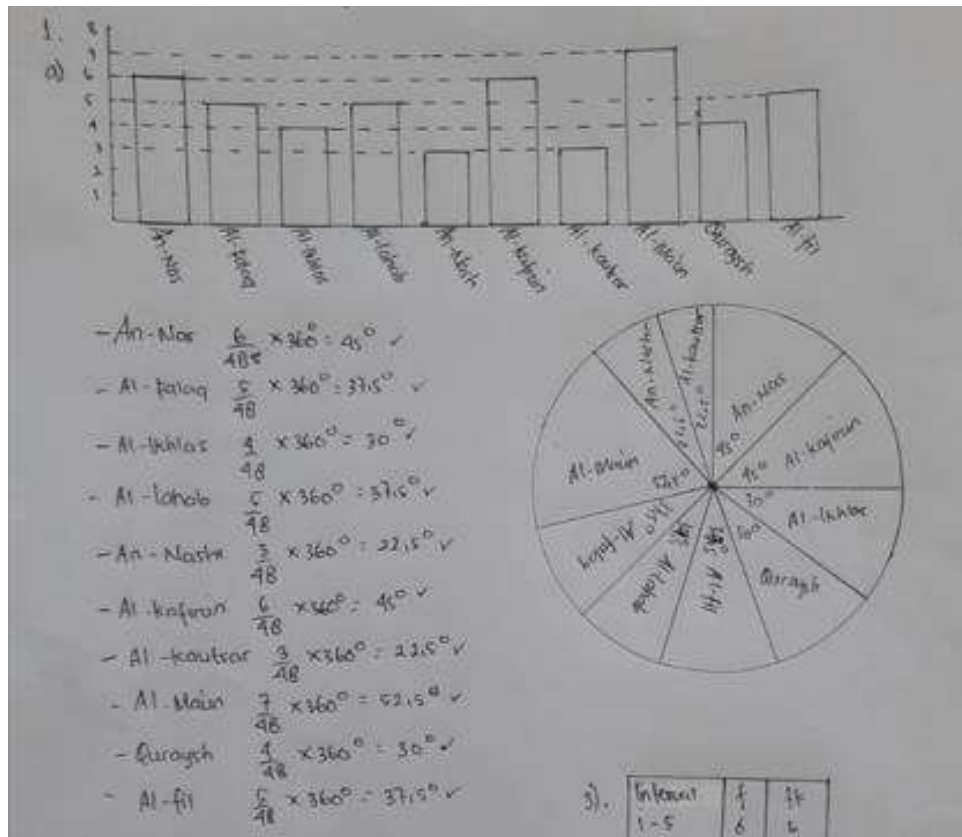 1.
a)
8
7
6
5
4
3
2
1
An-Nas
Al-falaq
Al-Ikhlas
Al-lahab
An-Nashr
Al-kafirun
Al-kautsar
Al-Maun
Quraysh
Al-fil
- An-Nas 6/48 × 360° = 45° ✓
- Al-falaq 5/48 × 360° = 37,5° ✓
- Al-Ikhlas 4/48 × 360° = 30° ✓
- Al-lahab 5/48 × 360° = 37,5° ✓
- An-Nashr 3/48 × 360° = 22,5° ✓
- Al-kafirun 6/48 × 360° = 45° ✓
- Al-kautsar 3/48 × 360° = 22,5° ✓
- Al-Maun 7/48 × 360° = 52,5° ✓
- Quraysh 4/48 × 360° = 30° ✓
- Al-fil 5/48 × 360° = 37,5° ✓
An-Nashr 22,5°
Al-kautsar 22,5°
An-Nas 45°
Al-kafirun 45°
Al-Ikhlas 30°
Quraysh 30°
Al-fil
Al-lahab
Al-falaq
Al-Maun 52,5°
3).
Interval f fk
1-5 6